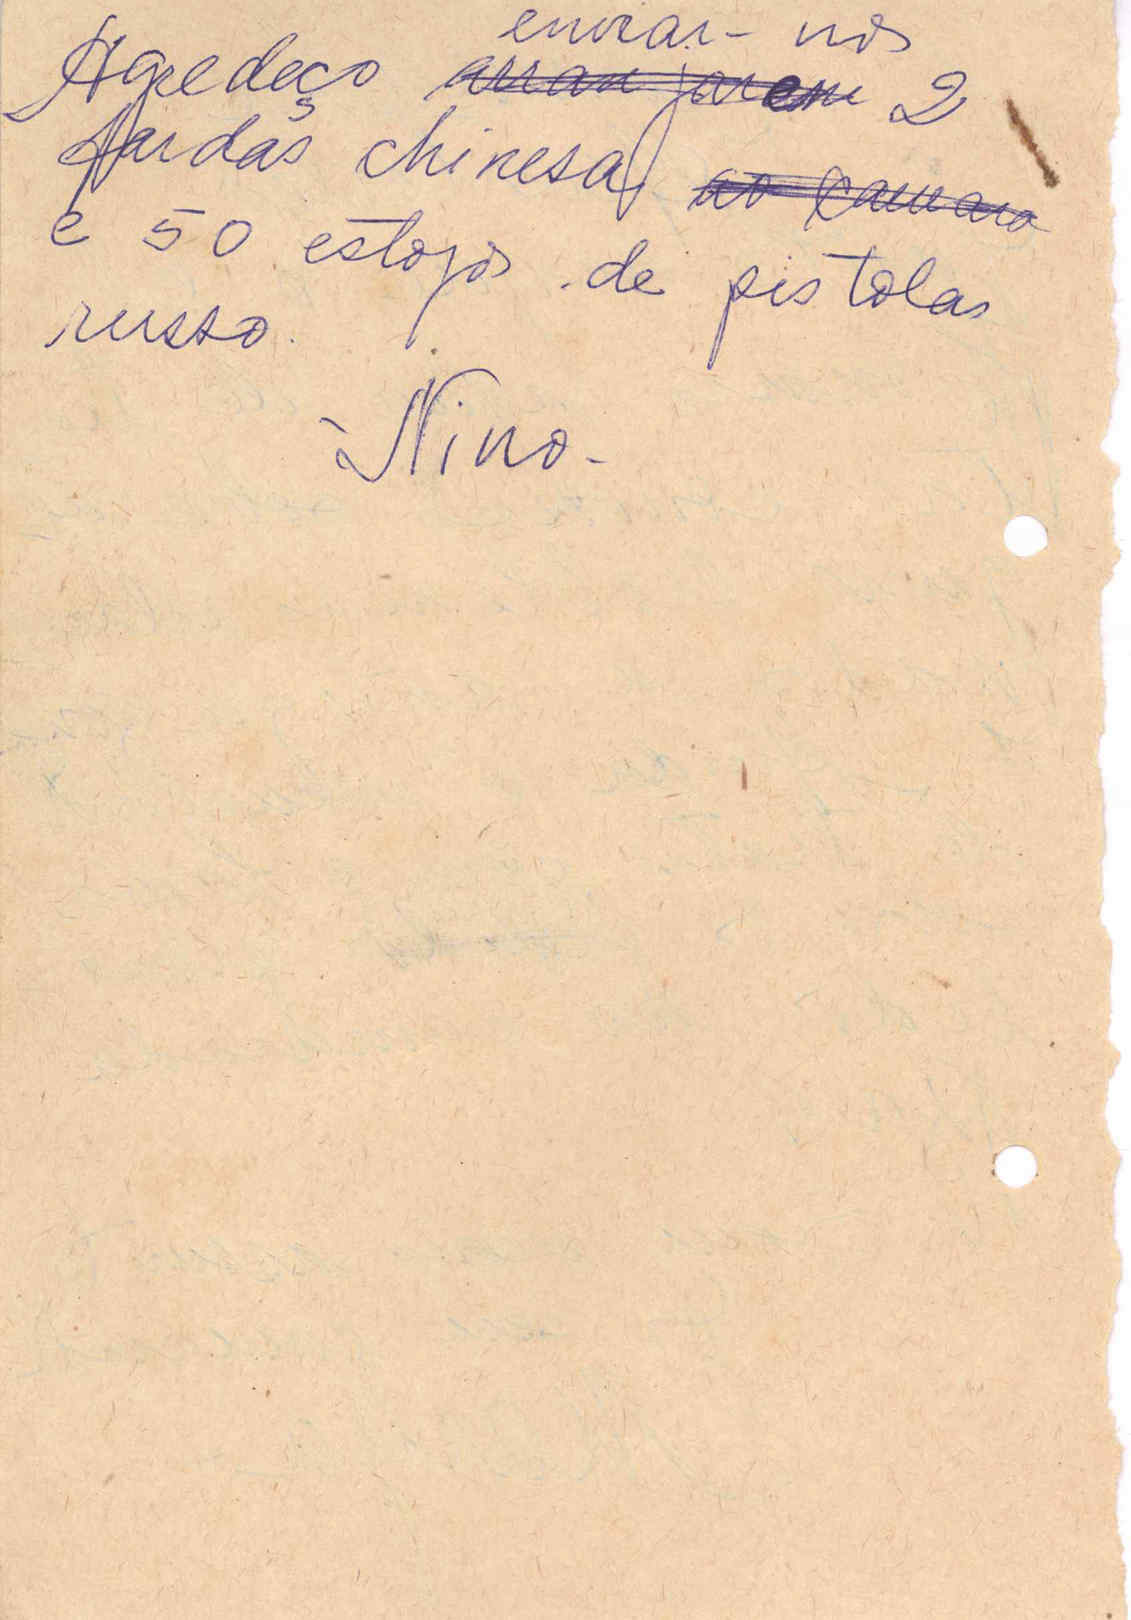 enviar-nos
Agredeço arranjarem 2
fardas chinesas ao camara
e 50 estojos de pistolas
russo.
-Nino-